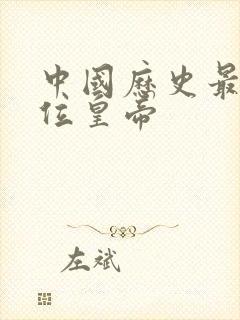 中國歷史最
位皇帝
左斌